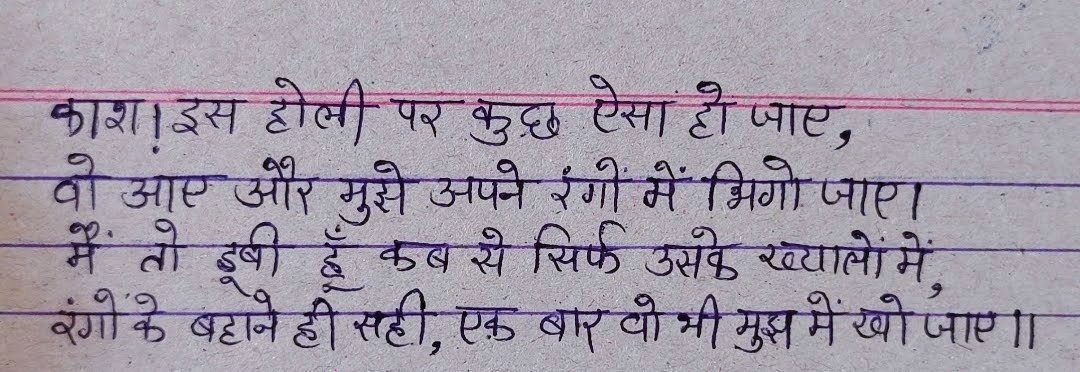 काश! इस होली पर कुछ ऐसा हो जाए,
वो आए और मुझे अपने रंगों में भिगो जाए।
मैं तो डूबी हूँ कब से सिर्फ उसके ख्यालों में,
रंगों के बहाने ही सही, एक बार वो भी मुझ में खो जाए॥